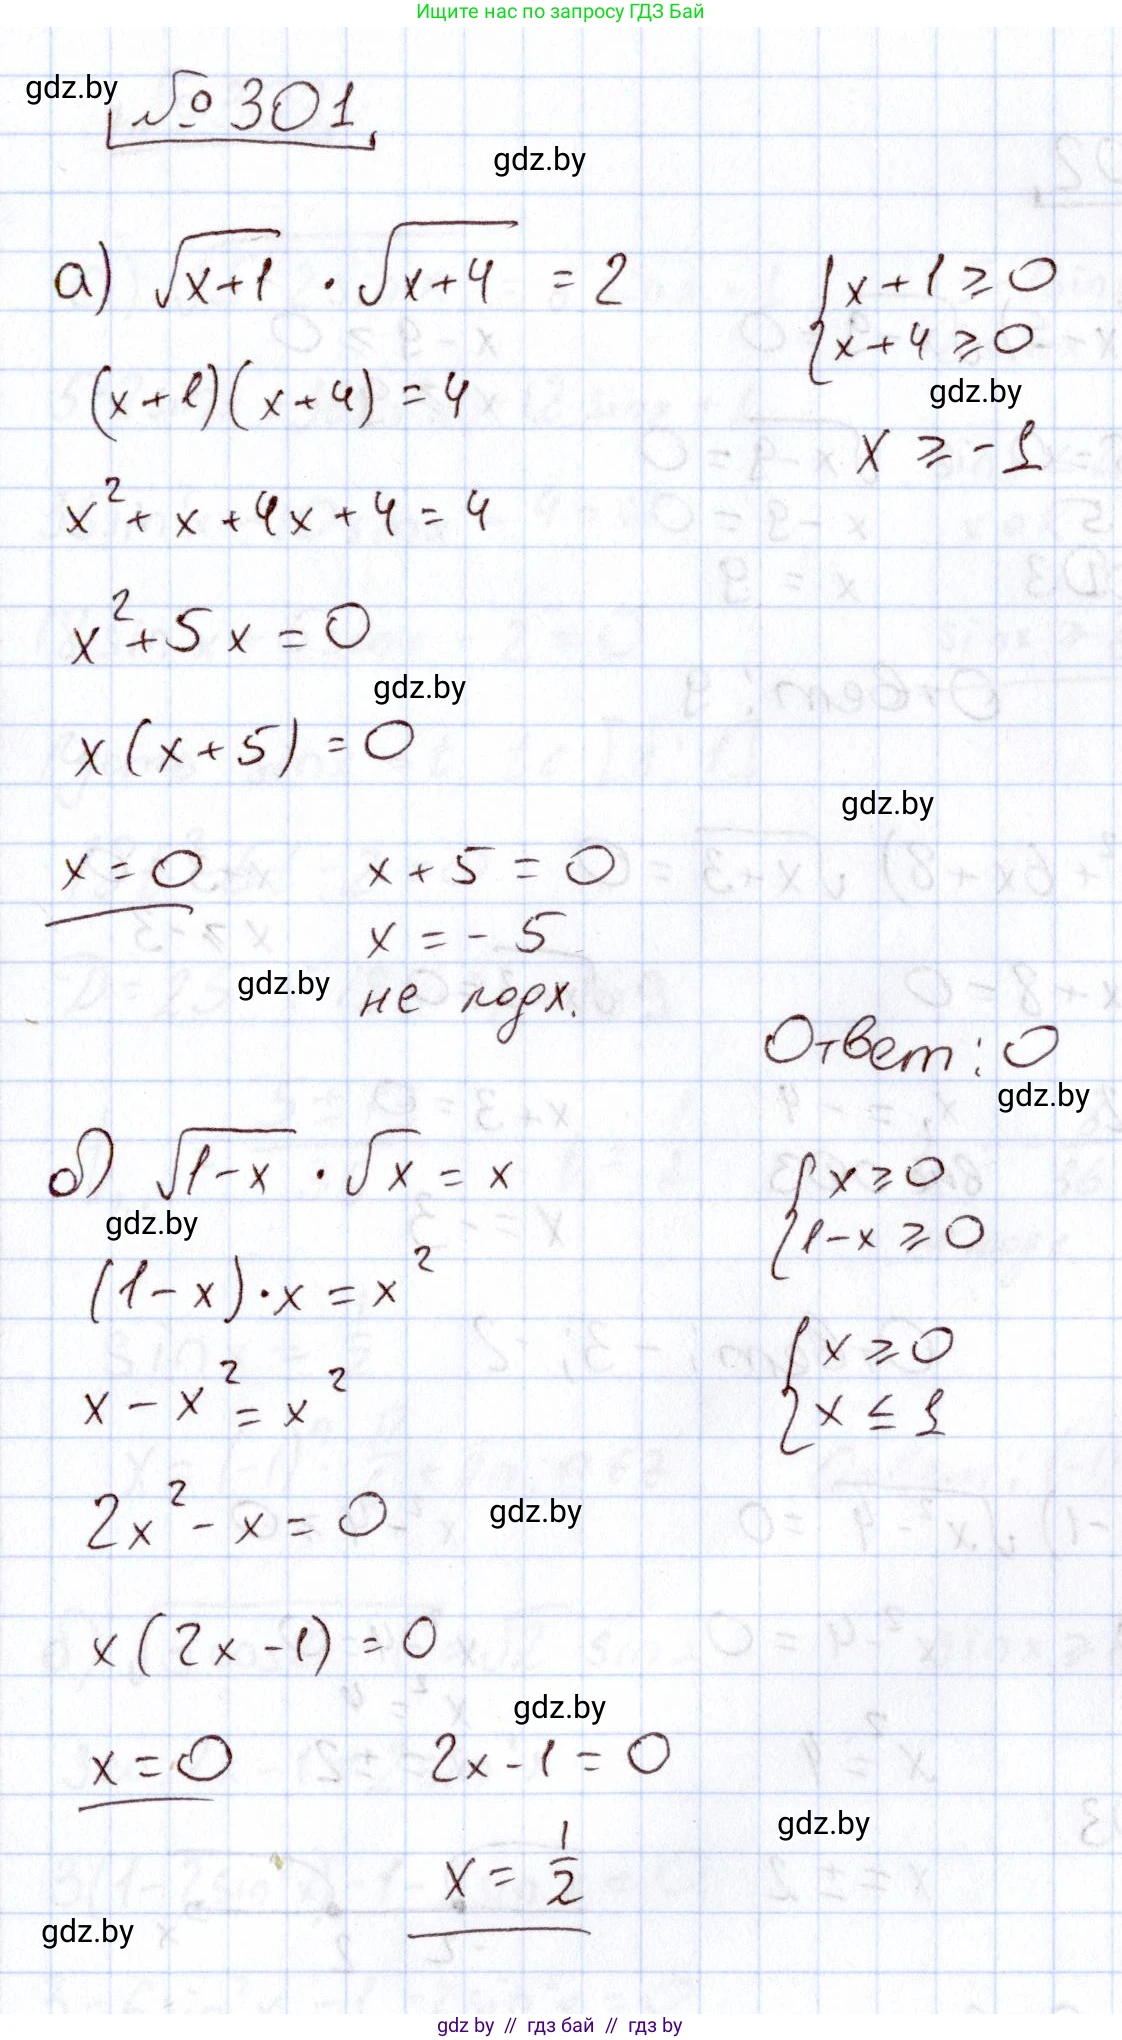 Ищите нас по запросу ГДЗ Бай
gdz.by
№301
gdz.by
а) √(x+1) · √(x+4) = 2
{ x+1 ≥ 0
{ x+4 ≥ 0
gdz.by
(x+1)(x+4) = 4
x ≥ -1
x² + x + 4x + 4 = 4
x² + 5x = 0
gdz.by
x(x+5) = 0
gdz.by
x = 0 x + 5 = 0
x = -5
gdz.by не подх.
Ответ: 0
gdz.by
б) √(1-x) · √x = x
{ x ≥ 0
{ 1-x ≥ 0
gdz.by
(1-x)·x = x²
{ x ≥ 0
{ x ≤ 1
x - x² = x²
2x² - x = 0
gdz.by
x(2x-1) = 0
gdz.by
x = 0 2x-1 = 0
gdz.by
x = 1/2
gdz.by
gdz by // гдз бай // гдз by